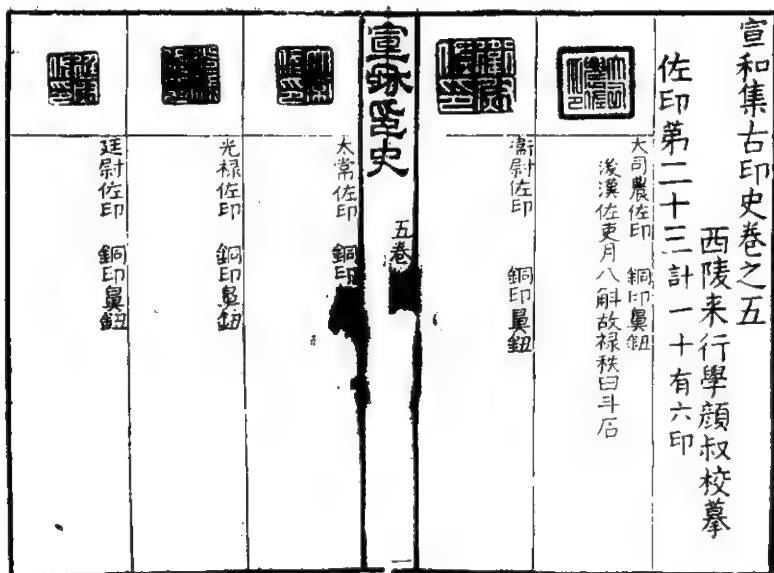 宣和集古印史卷之五
西陵来行學顔叔校摹
佐印第二十三計一十有六印
大司農佐印 銅印鼻鈕
後漢佐吏月八斛故禄秩曰斗石
衞尉佐印 銅印鼻鈕
宣龢印史
五卷
一
太常佐印 銅印
光禄佐印 銅印鼻鈕
廷尉佐印 銅印鼻鈕